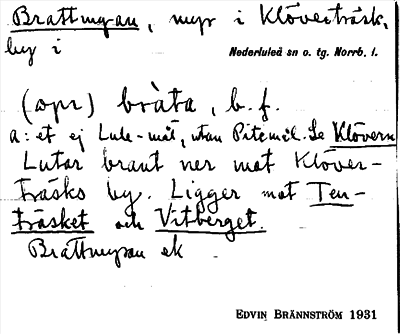 Brattmyran, myr i Klöverträsk,
by i Nederluleå sn o. tg. Norrb. l.
(opr) bràta, b. f.
a: et ej Lule-mål, utan Pitemål. Se Klövern
Lutar brant ner mot Klöver-
träsks by. Ligger mot Ten-
träsket och Vitberget.
Brattmyran ek
EDVIN BRÄNNSTRÖM 1931